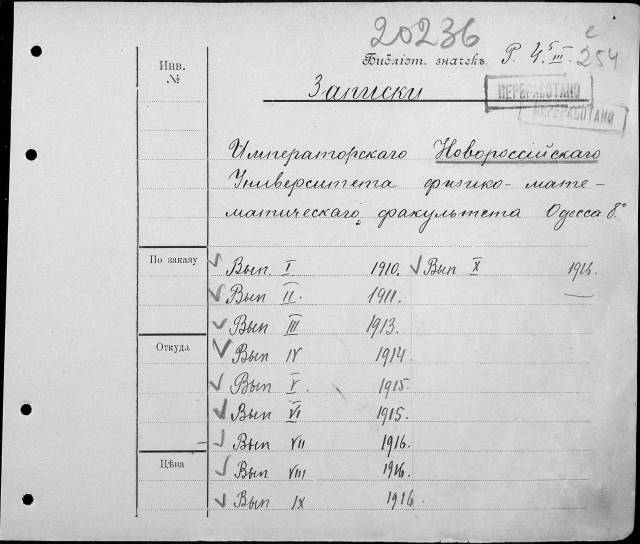 20236
Инв. №
Библіот. значекъ. Р. 4. 5/III. с 254
Записки
ПЕРЕРАБОТАНО
ПЕРЕРАБОТАНО
Императорскаго Новороссійскаго
Университета физико-мате-
матическаго факультета Одесса 8.°
По заказу
Вып. I 1910. Вып X 1916.
Вып II. 1911. —
Вып III 1913.
Откуда
Вып IV 1914
Вып V. 1915.
Вып VI 1915.
Вып VII 1916.
Цѣна
Вып VIII 1916.
Вып IX 1916.